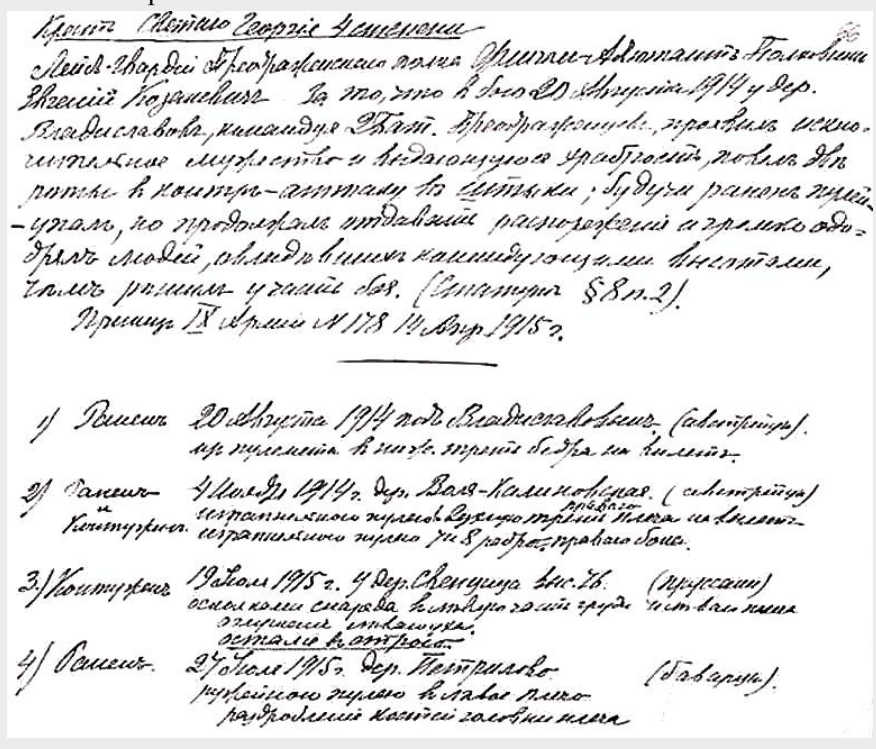 Крестъ Святаго Георгія 4 степени
66
Лейбъ-Гвардіи Преображенскаго полка Флигель-Адъютантъ Полковникъ
Евгеній Казакевичъ за то, что въ бою 20 Августа 1914 у дер.
Владиславовъ, командуя 2 Бат. Преображенцевъ, проявилъ исклю-
чительное мужество и выдающуюся храбрость, повелъ двѣ
роты въ контръ-аттаку въ штыки; будучи раненъ
упалъ, но продолжалъ отдавать распоряженія и громко обо-
дрялъ людей, овладѣвшихъ командующими высотами,
чѣмъ рѣшилъ участь боя. (Статутъ § 8 п. 2).
Приказъ IX Арміи N 178 14 Апр 1915 г.
1) Раненъ 20 Августа 1914 подъ Владиславовымъ (австрійцы).
изъ пулемета въ ниж. трети бедра на вылетъ.
2) Раненъ 4 Ноября 1914 г. дер. Воля-Калиновская. (австрійцы)
и праваго
Контуженъ шрапнельною пулею трети плеча на вылетъ
шрапнельною пулею 7 и 8 ребро праваго бока.
3) Контуженъ 19 Іюля 1915 г. у дер. Свенцица выс. 76. (пруссаки)
осколками снаряда въ лѣвую часть груди и лѣваго плеча
остался въ строю
4) Раненъ. 27 Іюля 1915 г. дер. Петрилово (баварцы).
ружейною пулею въ лѣвое плечо
раздробленіе кости головки плеча